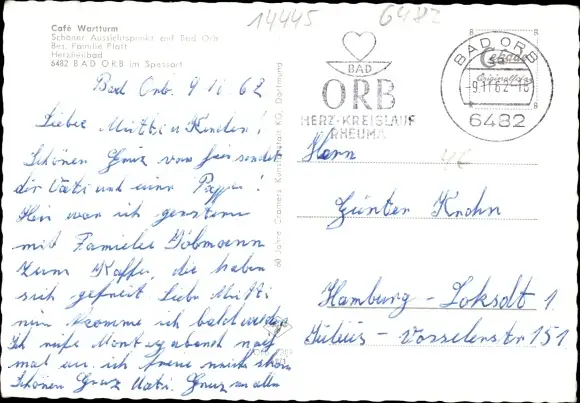 14445
6482
Café Wartturm
Schöner Aussichtspunkt auf Bad Orb
Bes. Familie Platt
Herzheilbad
6482 BAD ORB im Spessart
Bad Orb. 9 11. 62
Liebe Mutti u Kinder!
Schönen Gruz von hier sendet
dir Vati und euer Pappi!
Hier war ich gestern
mit Familie
zum Kaffee, die haben
sich gefreut Liebe Mutti
nun komme ich bald wieder
Ich rufe Montag abend noch
mal an. ich freue mich schon
Schönen Gruz Vati Gruz an alle
68 Jahre Cramers Kunstanstalt KG, Dortmund
BAD
ORB
HERZ-KREISLAUF
RHEUMA
BAD ORB
-9.11.62-18
6482
Herrn
Günter Krohn
Hamburg - Loksdt 1
Julius - Vosselerstr 151